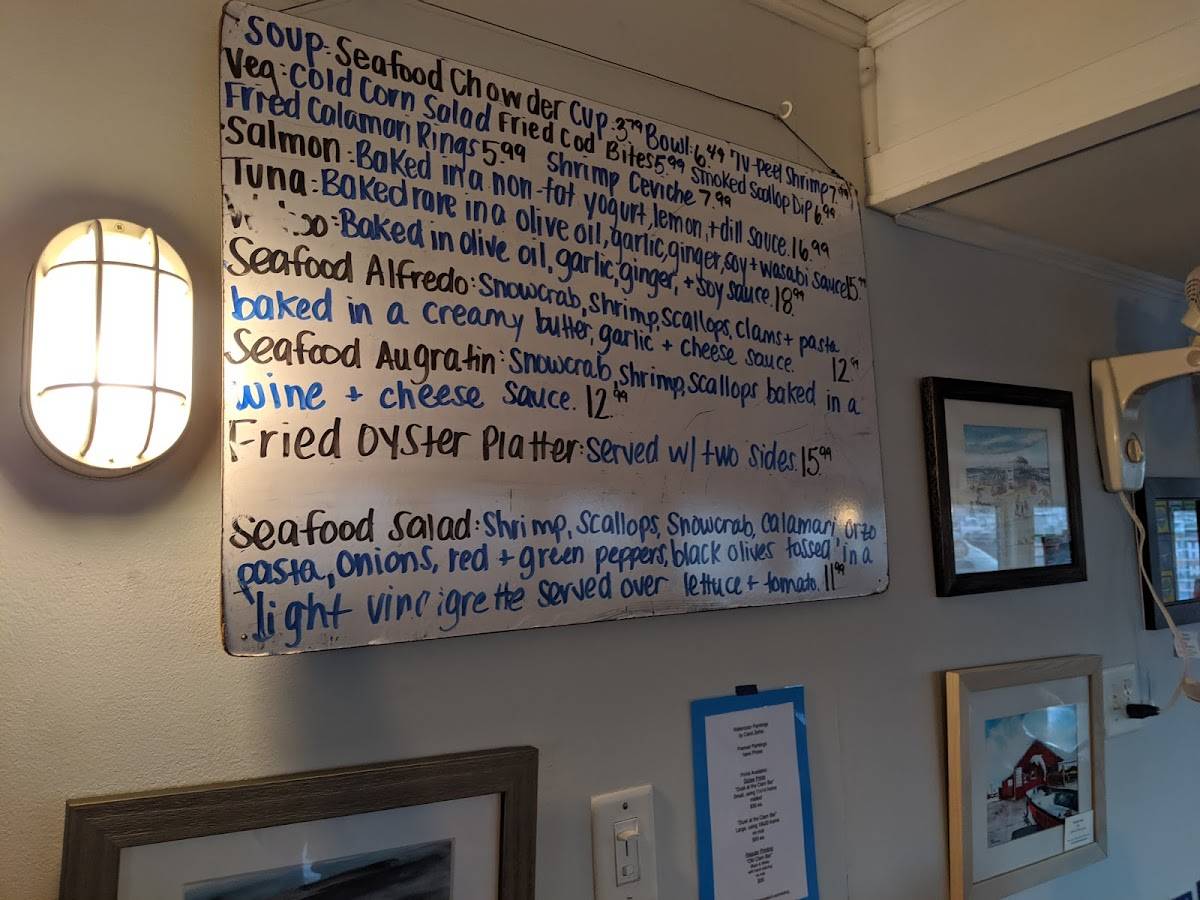 Soup: Seafood Chowder Cup: 3.79 Bowl: 6.49 7 U-peel Shrimp 7.99
Veg: Cold Corn Salad Fried Cod Bites 5.99 Smoked Scallop Dip 6.99
Fried Calamari Rings 5.99 Shrimp Ceviche 7.99
Salmon: Baked in a non-fat yogurt, lemon, + dill sauce. 16.99
Tuna: Baked rare in a olive oil, garlic, ginger, soy + wasabi sauce 15.99
Baked in olive oil, garlic, ginger, + soy sauce. 18.99
Seafood Alfredo: Snowcrab, shrimp, scallops, clams + pasta
baked in a creamy butter, garlic + cheese sauce. 12.99
Seafood Augratin: Snowcrab, shrimp, scallops baked in a
wine + cheese sauce. 12.99
Fried Oyster Platter: served w/ two sides. 15.99
Seafood Salad: Shrimp, scallops, snowcrab, calamari, orzo
pasta, onions, red + green peppers, black olives tossed in a
light vinaigrette served over lettuce + tomato. 11.99
Watercolor Paintings
Framed Paintings
Prints Available:
"Dusk at the Clam Bar"
"Dusk at the Clam Bar"
"Old Clam Bar"